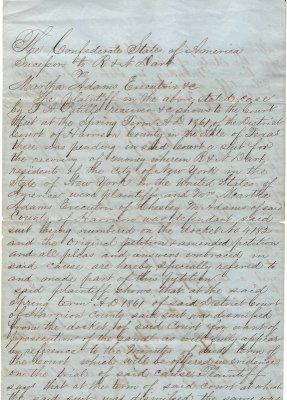 The Confederate States of America
Successor to R & N Dart
vs
Martha Adams Executrix &c
The plaintiff in the above stated case
by receiver &c shows to the Court
that at the Spring Term A.D. 1861 of the District
Court of Harrison County in the State of Texas
there was pending in said Court a suit for
the recovery of money wherein R & N Dart
residents of the City of New York in the
State of New York in the United States of
America were plaintiffs and Mrs Martha
Adams Executrix of of said
County of Harrison was defendant, said
suit being numbered on the docket No 4182
and the original petition & amended petition
and all pleas and answers embraced in
said cause, are here specially referred to
and made part of this petition
Said plaintiff shows that at the said
Spring term A.D 1861 of said District Court
of Harrison County said suit was dismissed
from the docket of said Court for want of
prosecution of the same as will fully appear
by reference to the minutes of said term of
the Court which will be offered in evidence
on the trial of said cause. Plaintiff
says that at the term of said court at which
the said suit was dismissed the same was